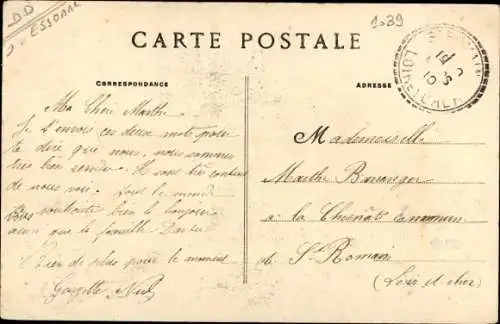 DD
ESSONNE
1039
CARTE POSTALE
CORRESPONDANCE
ADRESSE
LOIR-ET-CHER
Ma Chère Marthe
Je t'envois ces deux mots pour
te dire que nous, nous sommes
très bien rendus. Il sont très contens
de nous voir. Tous le monde
vous souhaite bien le bonjour
ainsi que la famille
Rien de plus pour le moment
Mademoiselle
Marthe Beranger
à la commun
de St Romain
(Loir et cher)